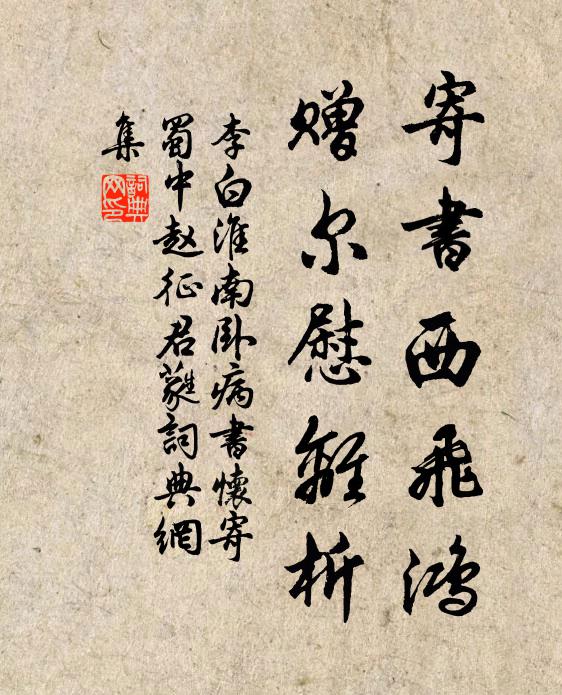 寄書西飛鴻
赠尔慰離析
李白淮南卧病書懷寄
蜀中赵征君蕤詞典網
集
詞典
网印